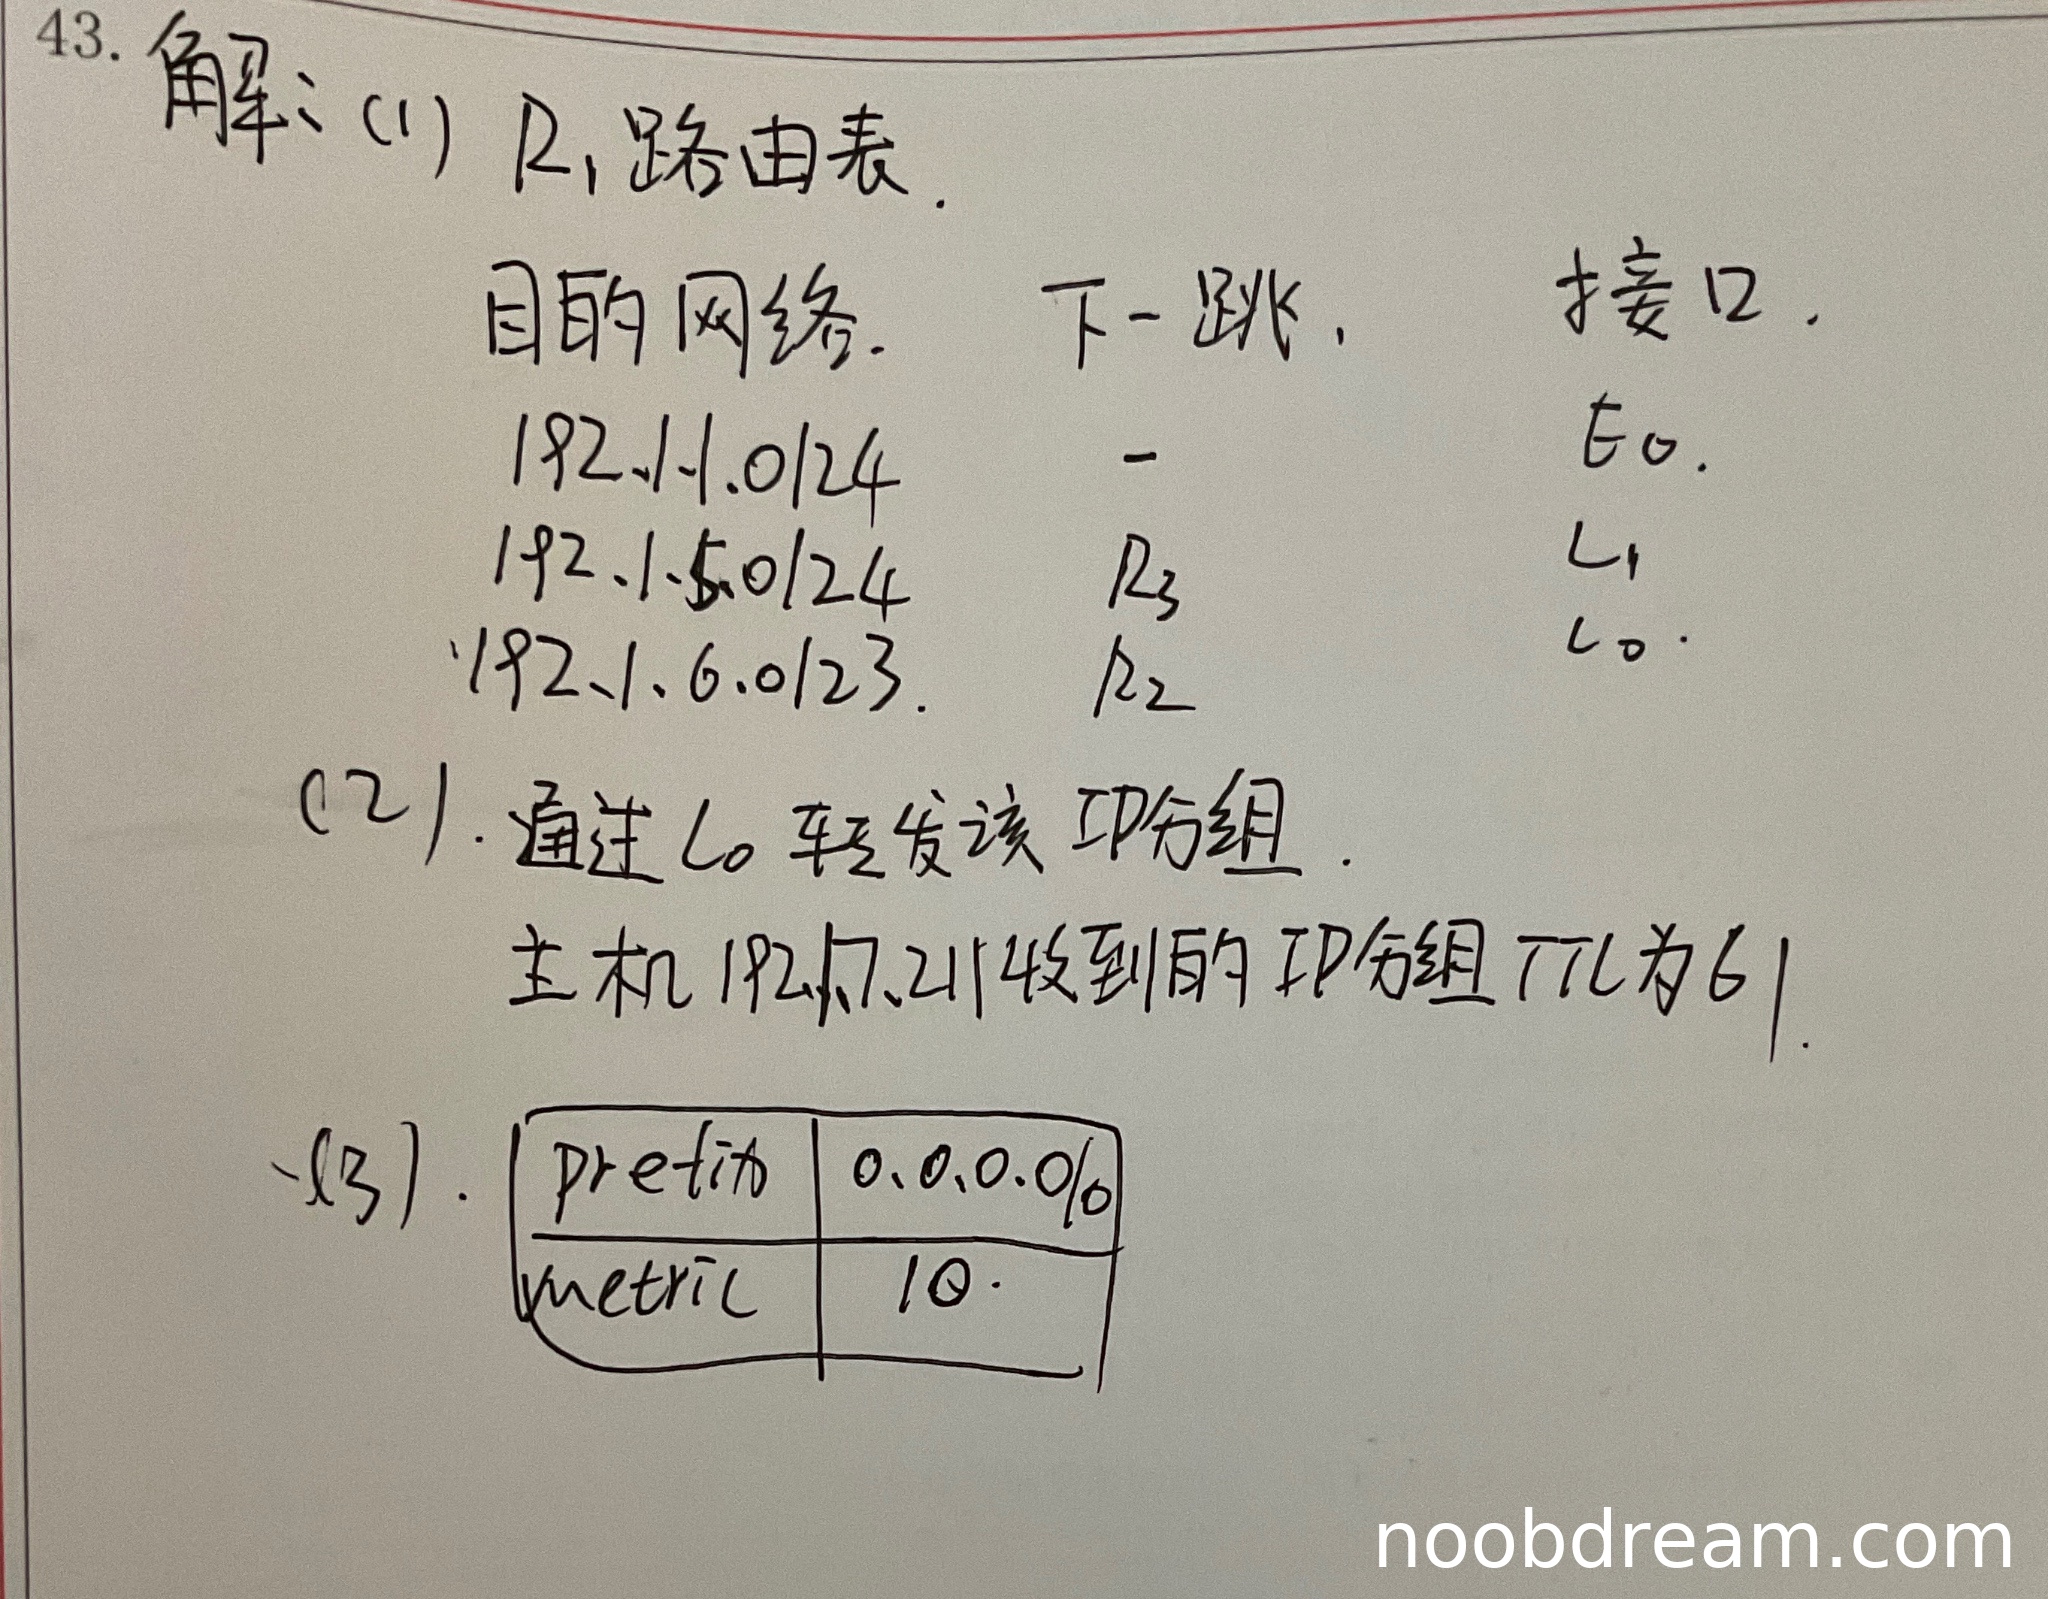 43. 解: (1) R1 路由表.
目的网络. 下一跳. 接口.
192.1.1.0/24 - E0.
192.1.5.0/24 R3 L1
192.1.6.0/23. R2 L0.
(2). 通过 L0 转发该 IP分组.
主机 192.1.7.211 收到的 IP分组 TTL 为 61.
(3). prefix 0.0.0.0/0
metric 10.
noobdream.com